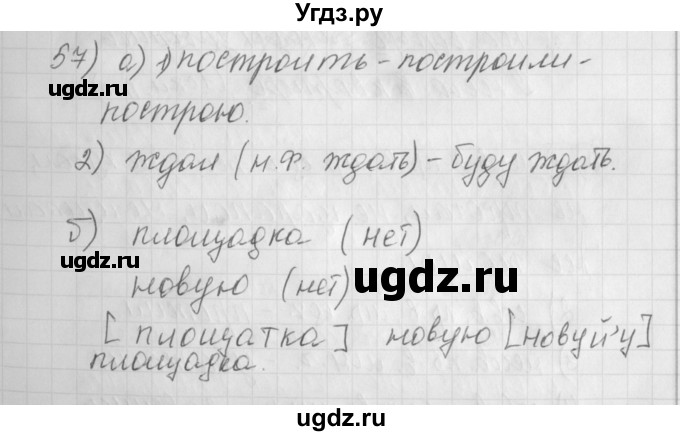 Угдз.ру
57) а) 1) построить - построили -
ugdz.ru
построю.
2) ждал (н.ф. ждать) - буду ждать.
б) площадка (нет)
ugdz.ru
новую (нет)
ugdz.ru
[площатка] новую [новуй'у]
площадка.
ugdz.ru
ugdz.ru